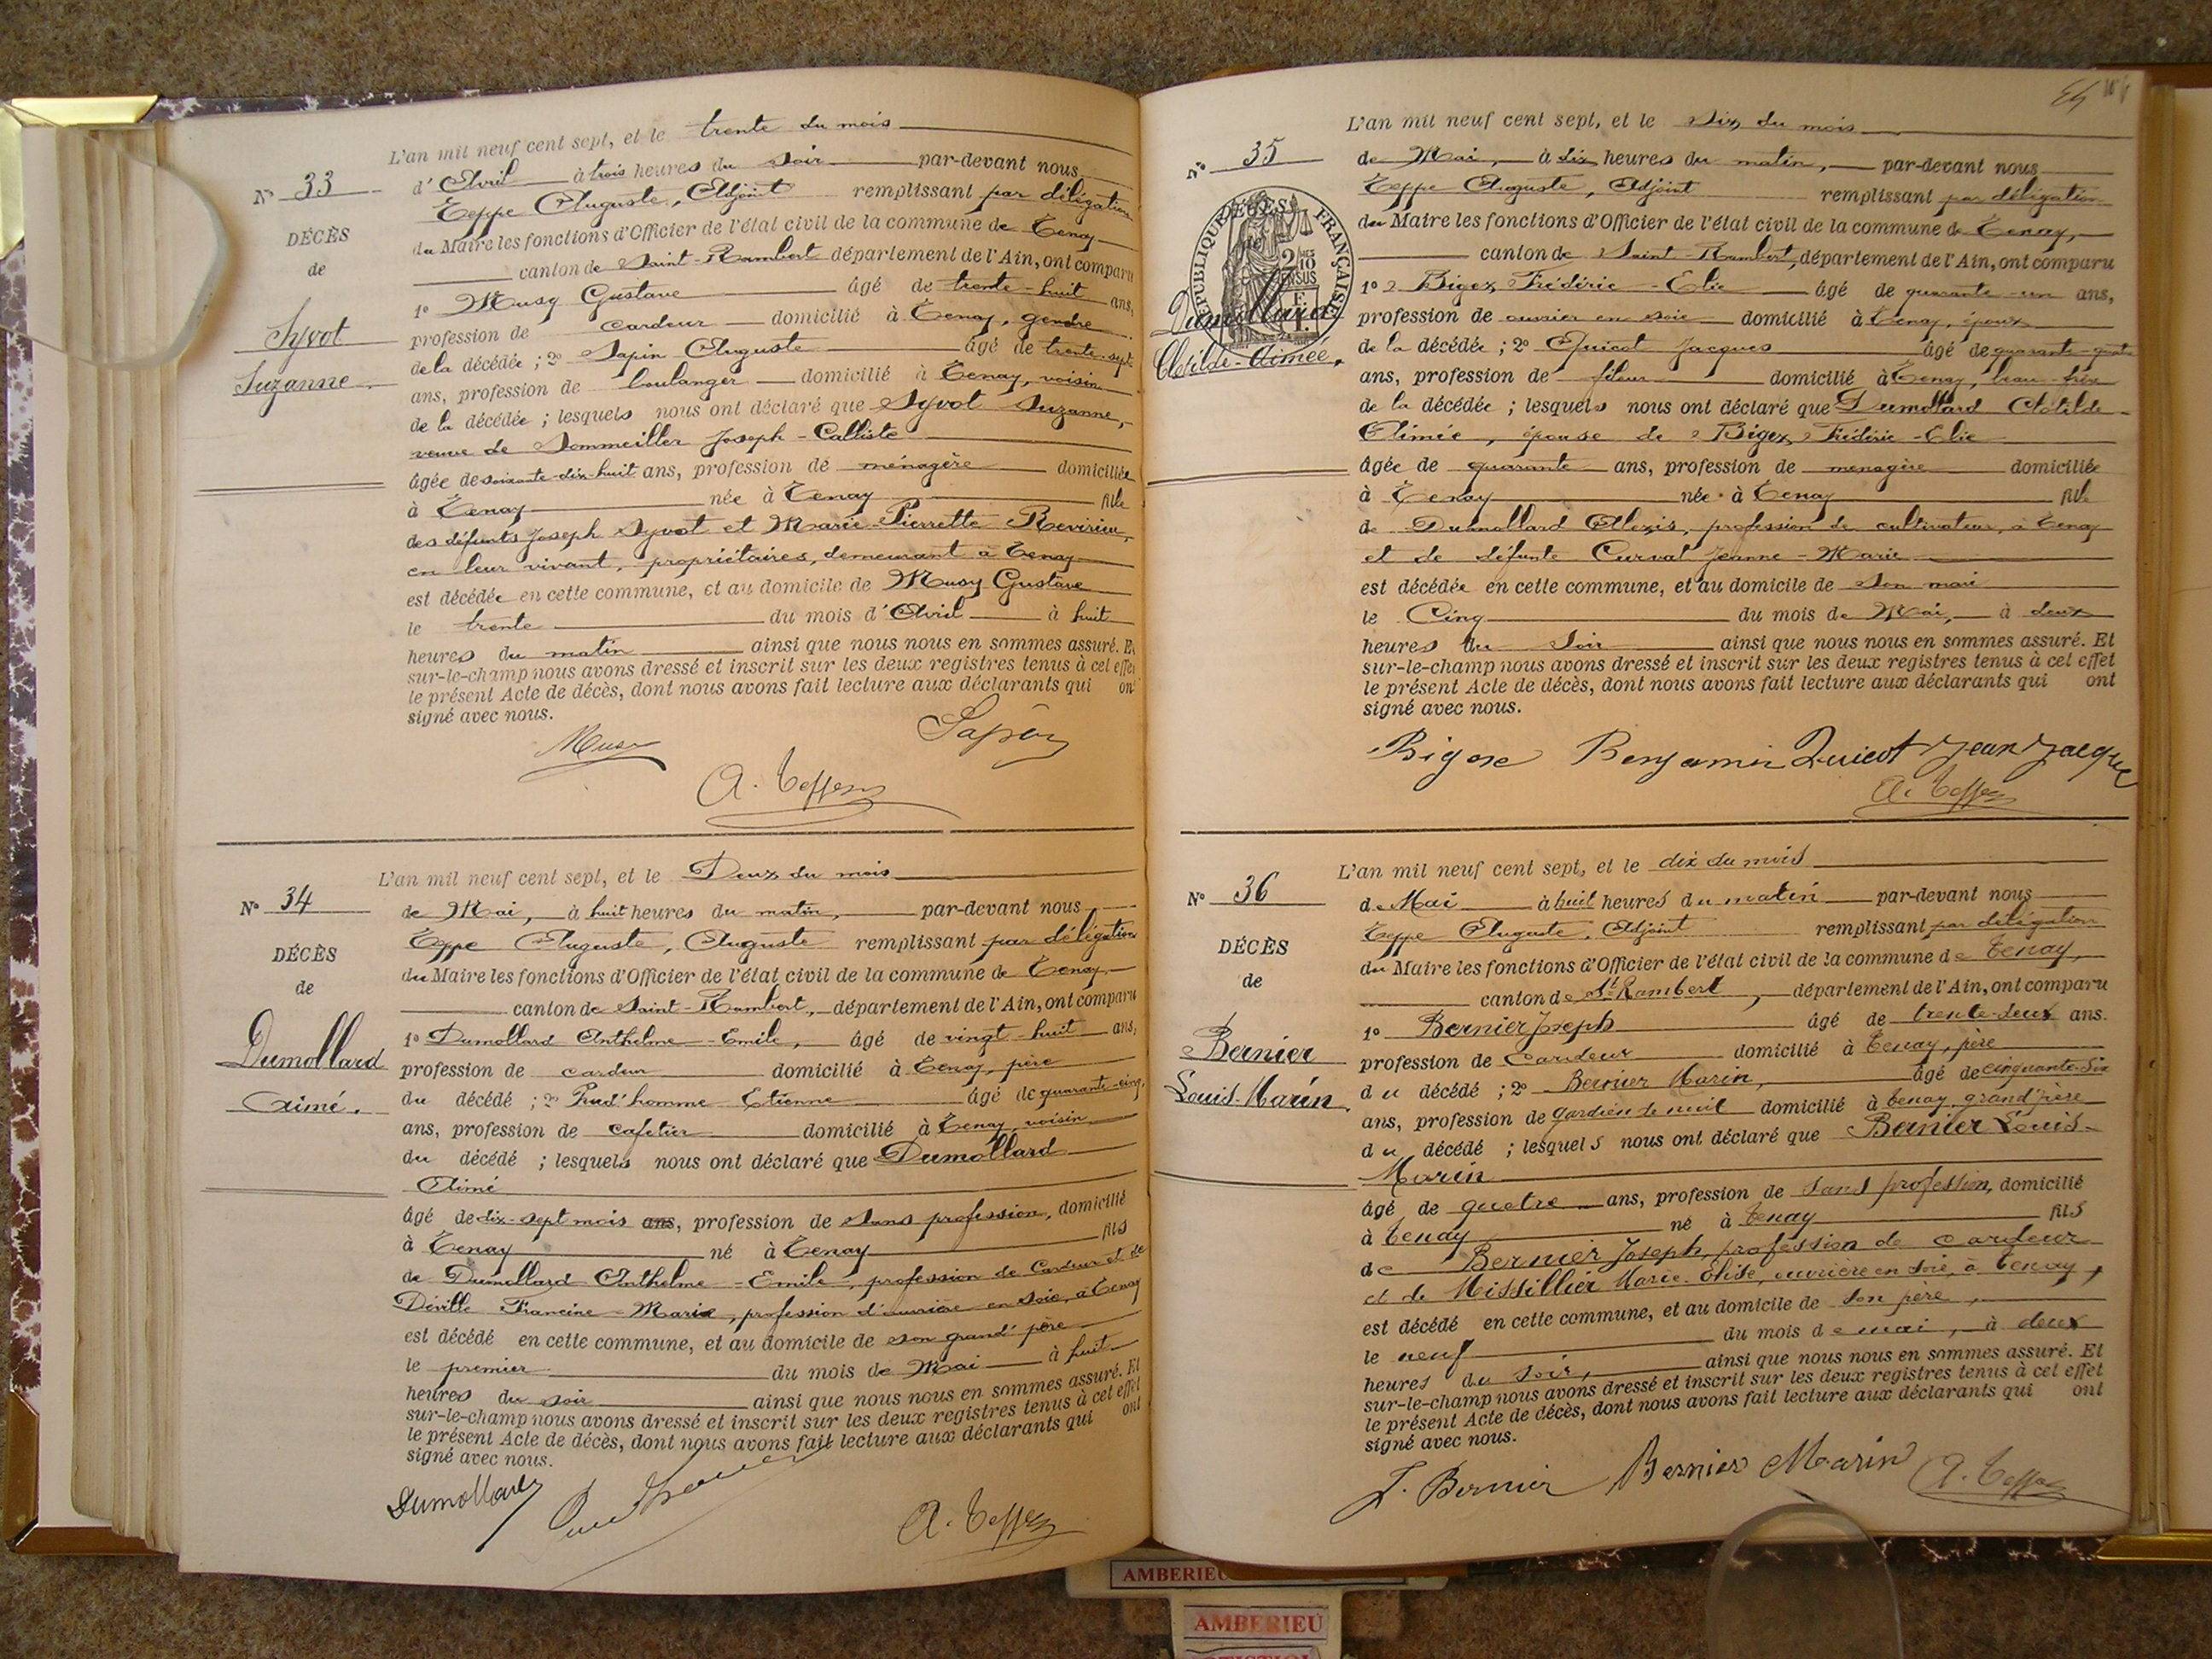 L'an mil neuf cent sept, et le trente du mois
N° 33
d'Avril à trois heures du soir par-devant nous
Teppe Auguste, Adjoint remplissant par délégation
DÉCÈS
du Maire les fonctions d'Officier de l'état civil de la commune de Tenay
de
canton de Saint-Rambert département de l'Ain, ont comparu
1° Musy Gustave âgé de trente-huit ans,
Syvot
profession de cardeur domicilié à Tenay, gendre
de la décédée ; 2° Sapin Auguste âgé de trente-sept
Suzanne
ans, profession de boulanger domicilié à Tenay, voisin
de la décédée ; lesquels nous ont déclaré que Syvot Suzanne,
veuve de Sommeiller Joseph-Calliste
âgée de soixante-dix-huit ans, profession de ménagère domiciliée
à Tenay née à Tenay fille
des défunts Joseph Syvot et Marie-Pierrette
en leur vivant, propriétaires, demeurant à Tenay
est décédée en cette commune, et au domicile de Musy Gustave
le trente du mois d'Avril à huit
heures du matin ainsi que nous nous en sommes assuré. Et
sur-le-champ nous avons dressé et inscrit sur les deux registres tenus à cet effet
le présent Acte de décès, dont nous avons fait lecture aux déclarants qui ont
signé avec nous.
Musy Sapin
A. Teppe
L'an mil neuf cent sept, et le Deux du mois
N° 34
de Mai, à huit heures du matin, par-devant nous
Teppe Auguste, Auguste remplissant par délégation
DÉCÈS
du Maire les fonctions d'Officier de l'état civil de la commune de Tenay
de
canton de Saint-Rambert, département de l'Ain, ont comparu
1° Dumollard Anthelme-Emile, âgé de vingt-huit ans,
Dumollard
profession de cardeur domicilié à Tenay, père
Aimé.
du décédé ; 2° Prud'homme Etienne âgé de quarante-cinq
ans, profession de cafetier domicilié à Tenay, voisin
du décédé ; lesquels nous ont déclaré que Dumollard
Aimé
âgé de dix-sept mois ans, profession de sans profession, domicilié
à Tenay né à Tenay fils
de Dumollard Anthelme-Emile, profession de Cardeur et de
Déville Francine-Marie, profession d'ouvrière en soie, à Tenay
est décédé en cette commune, et au domicile de son grand'père
le premier du mois de Mai à huit
heures du soir ainsi que nous nous en sommes assuré. Et
sur-le-champ nous avons dressé et inscrit sur les deux registres tenus à cet effet
le présent Acte de décès, dont nous avons fait lecture aux déclarants qui ont
signé avec nous.
Dumollard
A. Teppe
L'an mil neuf cent sept, et le Six du mois
N° 35
de Mai, à dix heures du matin, par-devant nous
Teppe Auguste, Adjoint remplissant par délégation
RÉPUBLIQUE FRANÇAISE
2 10
SUS
du Maire les fonctions d'Officier de l'état civil de la commune de Tenay,
canton de Saint-Rambert, département de l'Ain, ont comparu
1° Bigex Frédéric-Elie âgé de quarante-un ans,
Dumollard
profession de ouvrier en soie domicilié à Tenay, époux
Clotilde-Aimée,
de la décédée ; 2° Quicot Jacques âgé de quarante-quatre
ans, profession de fileur domicilié à Tenay, beau-frère
de la décédée ; lesquels nous ont déclaré que Dumollard Clotilde
Aimée, épouse de Bigex Frédéric-Elie
âgée de quarante ans, profession de ménagère domiciliée
à Tenay née à Tenay fille
de Dumollard Alexis, profession de cultivateur, à Tenay
et de défunte Curval Jeanne-Marie
est décédée en cette commune, et au domicile de son mari
le Cinq du mois de Mai, à deux
heures du soir ainsi que nous nous en sommes assuré. Et
sur-le-champ nous avons dressé et inscrit sur les deux registres tenus à cet effet
le présent Acte de décès, dont nous avons fait lecture aux déclarants qui ont
signé avec nous.
Bigex Benjamin Quicot Jean Jacque
A. Teppe
L'an mil neuf cent sept, et le dix du mois
N° 36
de Mai à huit heures du matin par-devant nous
Teppe Auguste, Adjoint remplissant par délégation
DÉCÈS
du Maire les fonctions d'Officier de l'état civil de la commune de Tenay,
de
canton de St Rambert, département de l'Ain, ont comparu
1° Bernier Joseph âgé de trente-deux ans.
Bernier
profession de Cardeur domicilié à Tenay, père
Louis-Marin
du décédé ; 2° Bernier Marin, âgé de cinquante-six
ans, profession de gardien de nuit domicilié à tenay, grand'père
du décédé ; lesquels nous ont déclaré que Bernier Louis-
Marin
âgé de quatre ans, profession de sans profession, domicilié
à tenay né à tenay fils
de Bernier Joseph, profession de cardeur
et de Missillier Marie-Elise, ouvrière en soie, à Tenay,
est décédé en cette commune, et au domicile de son père,
le neuf du mois de mai, à deux
heures du soir, ainsi que nous nous en sommes assuré. Et
sur-le-champ nous avons dressé et inscrit sur les deux registres tenus à cet effet
le présent Acte de décès, dont nous avons fait lecture aux déclarants qui ont
signé avec nous.
J. Bernier Bernier Marin A. Teppe
AMBERIEU
AMBERIEU